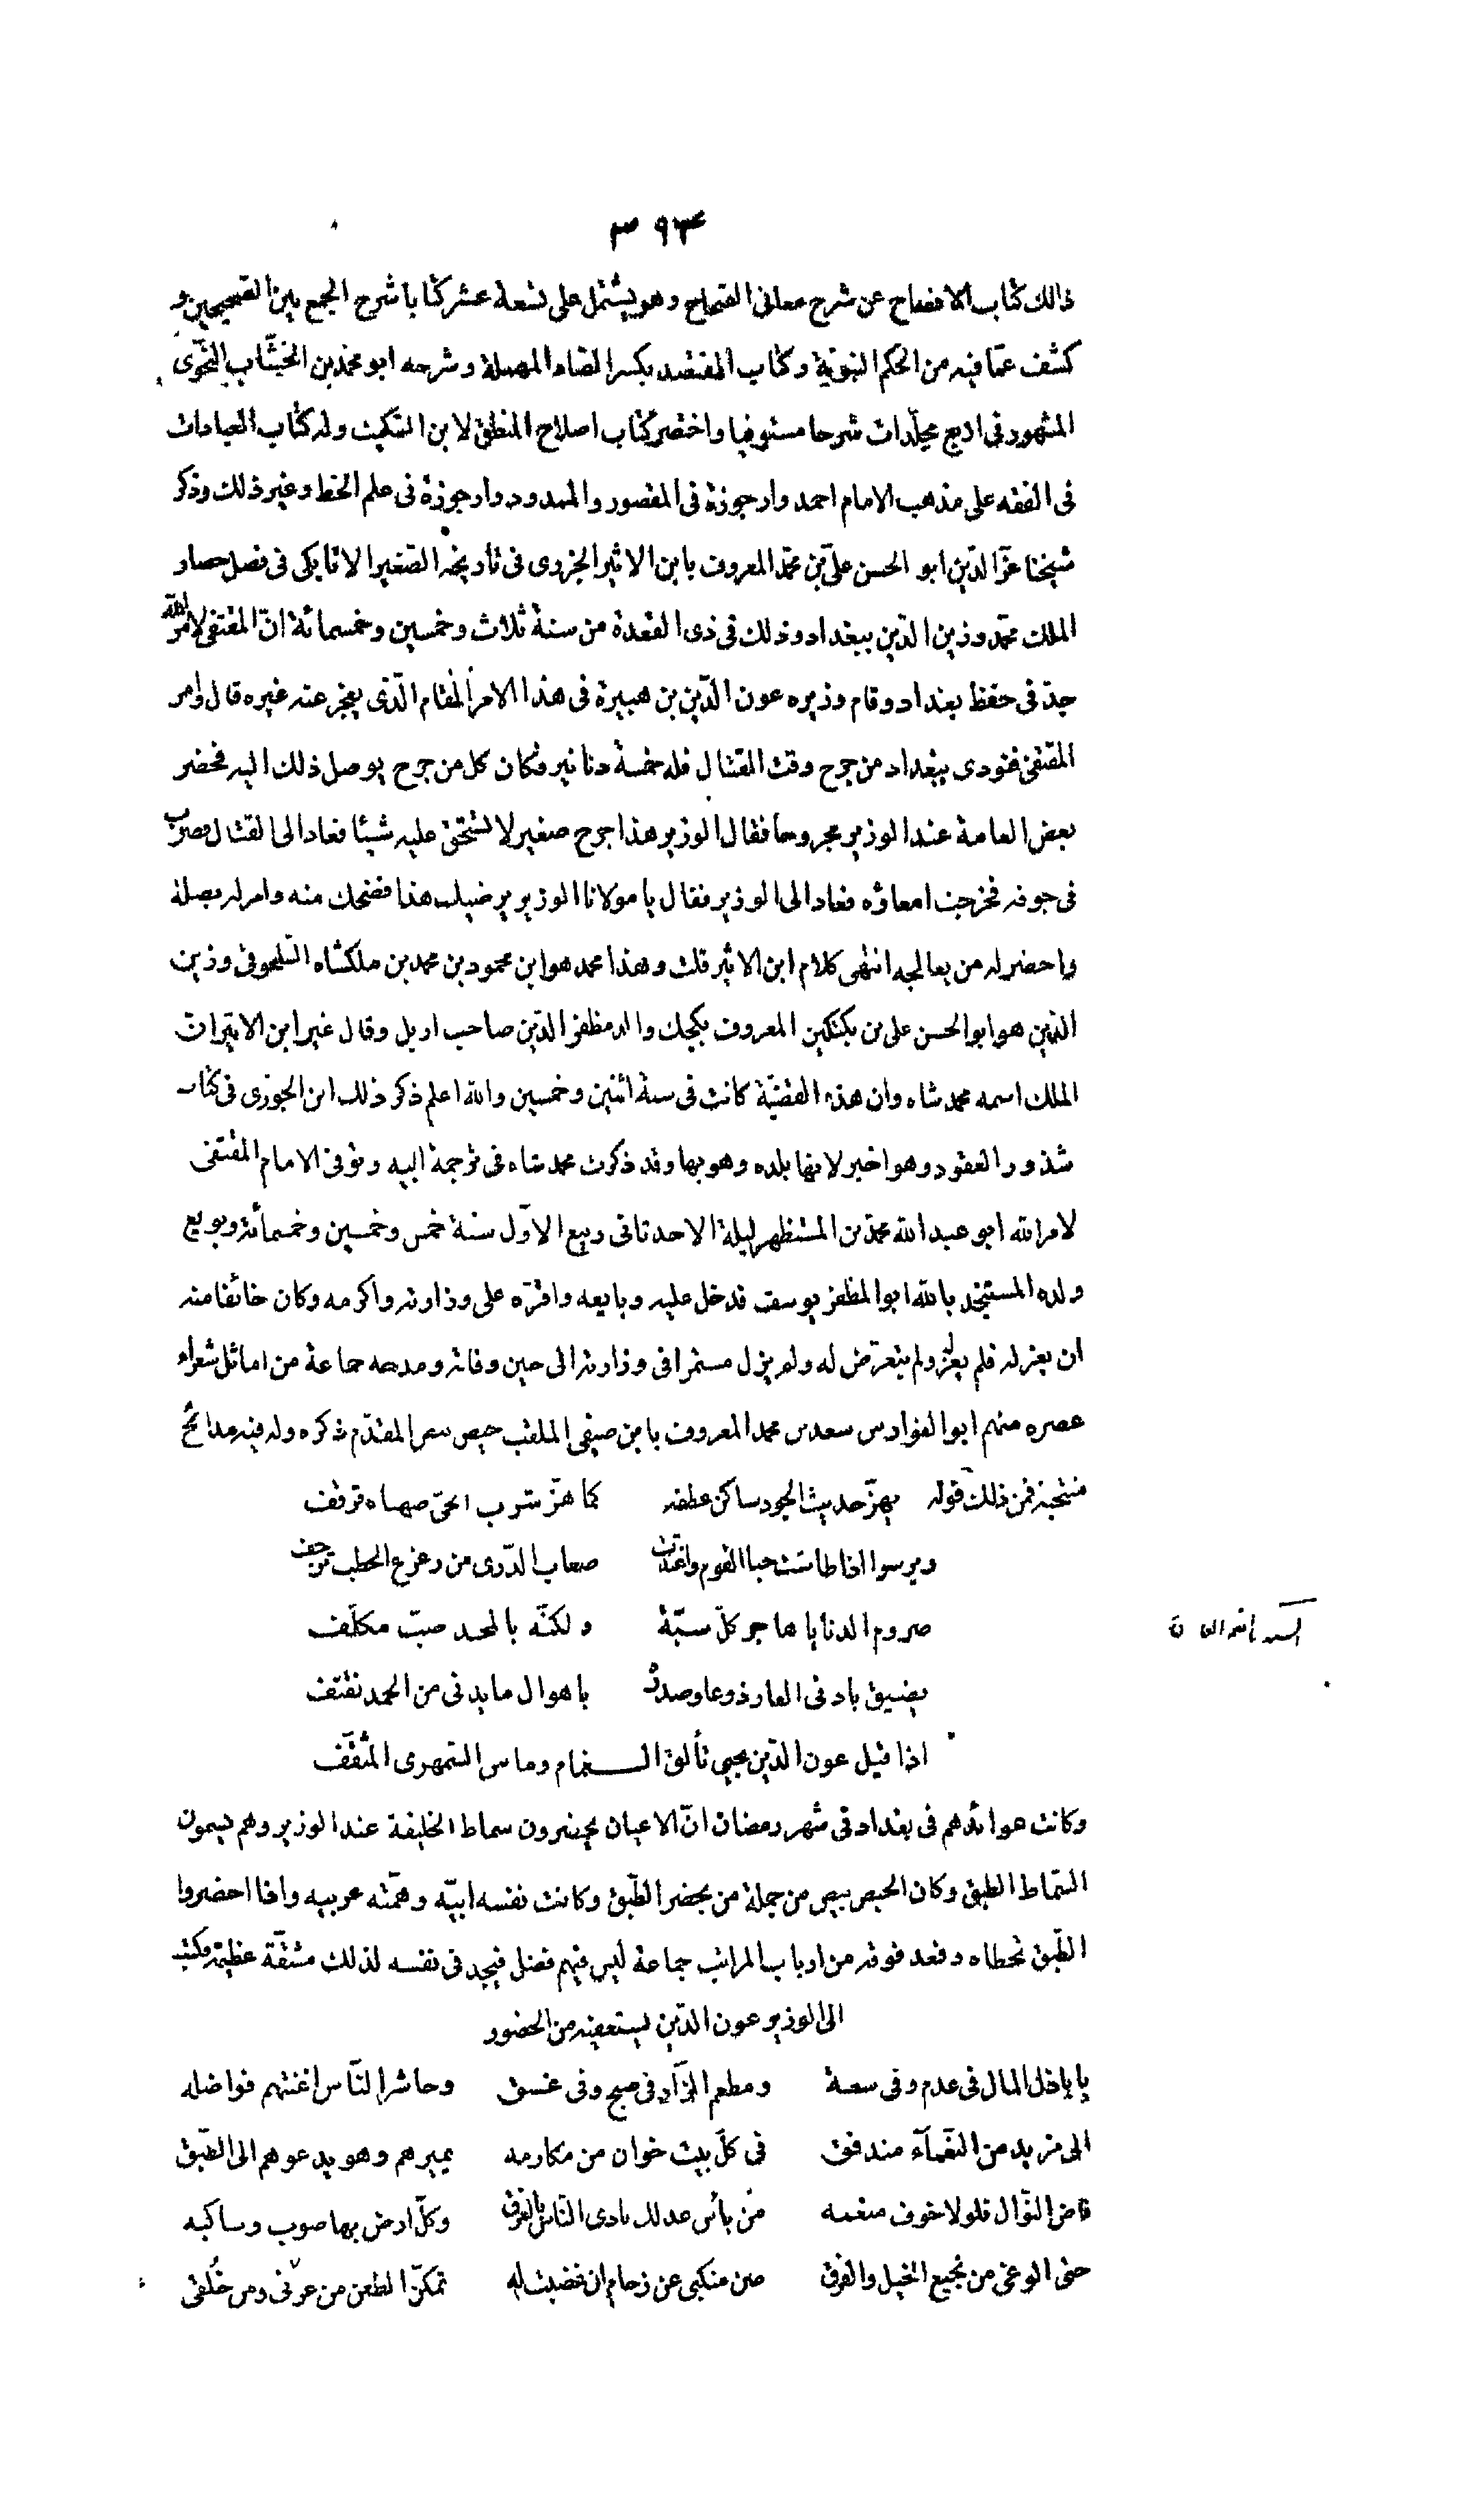 ٣٩٣
ذالك كتاب الافصاح عن شرح معانى الصحاح وهو يشتمل على تسعة عشر كتابا شرح الجمع بين الصحيحين و
كشف عمّا فيه من الحكم النبويّة وكتاب المقتصد بكسر الصاد المهملة وشرحه ابو محمد بن الخشّاب النحّوى
المشهور فى اربع مجلّدات شرحا مستوفيا واختصر كتاب اصلاح المنطق لابن السّكيت وله كتاب العبادات
فى الفقه على مذهب الامام احمد وارجوزة فى المقصور والممدود وارجوزة فى علم الخط وغير ذلك وذكر
شيخنا عزّ الدّين ابو الحسن علىّ بن محمّد المعروف بابن الاثير الجزرى فى تاريخه الصّغير الاتابكى فى فصل حصار
الملك محمّد وزين الدّين ببغداد وذلك فى ذى القعدة من سنة ثلاث وخمسين وخمسمائة انّ المقتفى لامر الله
جدّ فى حفظ بغداد وقام وزيره عون الدّين بن هبيرة فى هذا الامر المقام الّذى يعجز عنه غيره قال وامر
المقتفى فنودى ببغداد من جرح وقت القتال فله خمسة دنانير فكان كل من جرح يوصل ذلك اليه فحضر
بعض العامة عند الوزير مجروحا فقال الوزير هذا جرح صغير لا تستحق عليه شيئا فعاد الى القتال فضرب
فى جوفه فخرجت امعاؤه فعاد الى الوزير فقال يا مولانا الوزير يرضيك هذا فضحك منه وامر له بصلة
واحضر له من يعالجه انتهى كلام ابن الاثير قلت وهذا محمد هو ابن محمود بن محمد بن ملكشاه السّلجوقى وزين
الدّين هو ابو الحسن على بن بكتكين المعروف بكجك والد مظفر الدّين صاحب اربل وقال غير ابن الاثير ان
الملك اسمه محمد شاه وان هذه القضيّة كانت فى سنة اثنين وخمسين والله اعلم ذكر ذلك ابن الجوزى فى كتاب
شذور العقود وهو اخبر لانها بلده وهو بها وقد ذكرت محمد شاه فى ترجمة ابيه وتوفى الامام المقتفى
لامر الله ابو عبد الله محمد بن المستظهر ليلة الاحد ثانى ربيع الاوّل سنة خمس وخمسين وخمسمائة وبويع
ولده المستنجد بالله ابو المظفر يوسف فدخل عليه وبايعه واقرّه على وزارته واكرمه وكان خائفا منه
ان يعزله فلم يعزله ولم يتعرّض له ولم يزل مستمرا فى وزارته الى حين وفاته ومدحه جماعة من اماثل شعراء
عصره منهم ابو الفوارس سعد بن محمد المعروف بابن صيفى الملقب حيص بيص المقدّم ذكره وله فيه مدائح
منتخبة فمن ذلك قوله يهزّ حديث الجود ساكن عطفه كما هزّ شرب الحىّ صهباء قرقف
ويرسوا اذا طاشت حبا القوم واغتدت صعاب الذّرى من زعزع الخطب ترجف
صروم الدنايا هاجر كلّ سبّة ولكنّه بالمجد صبّ مكلّف
يضيق بادنى العار ذرعا وصدره باهوال ما يدنى من الحمد نفنف
اذا قيل عون الدّين يحيى تألق الـــغمام وماس السّمهرى المثقّف
وكانت عوائدهم فى بغداد فى شهر رمضان انّ الاعيان يحضرون سماط الخليفة عند الوزير وهم يسمون
السّماط الطبق وكان الحيص بيص من جملة من يحضر الطّبق وكانت نفسه ابيّه وهمّته عربيه واذا احضروا
الطّبق تخطاه وقعد فوقه من ارباب المراتب جماعة ليس فيهم فضل فيجد فى نفسه لذلك مشقّة عظيمة فكتب
الى الوزير عون الدّين يستعفيه من الحضور
يا باذل المال فى عدم وفى سعة ومطعم الزّاد فى صبح وفى غسق وحاشر النّاس اغنتهم فواضله
الى مزيد من النّعمآء مندفق فى كلّ بيت خوان من مكارمه يميرهم وهو يدعوهم الى الطّبق
فاض النّوال فلولا خوف منعمه من بأس عدلك نادى النّاس بالغرق وكلّ ارض بها صوب وساكبه
حتى الوغى من نجيع الخيل والعرق صن منكبى عن زحام ان غضبت له تمكّن الطعن من عرضى ومن خُلقى